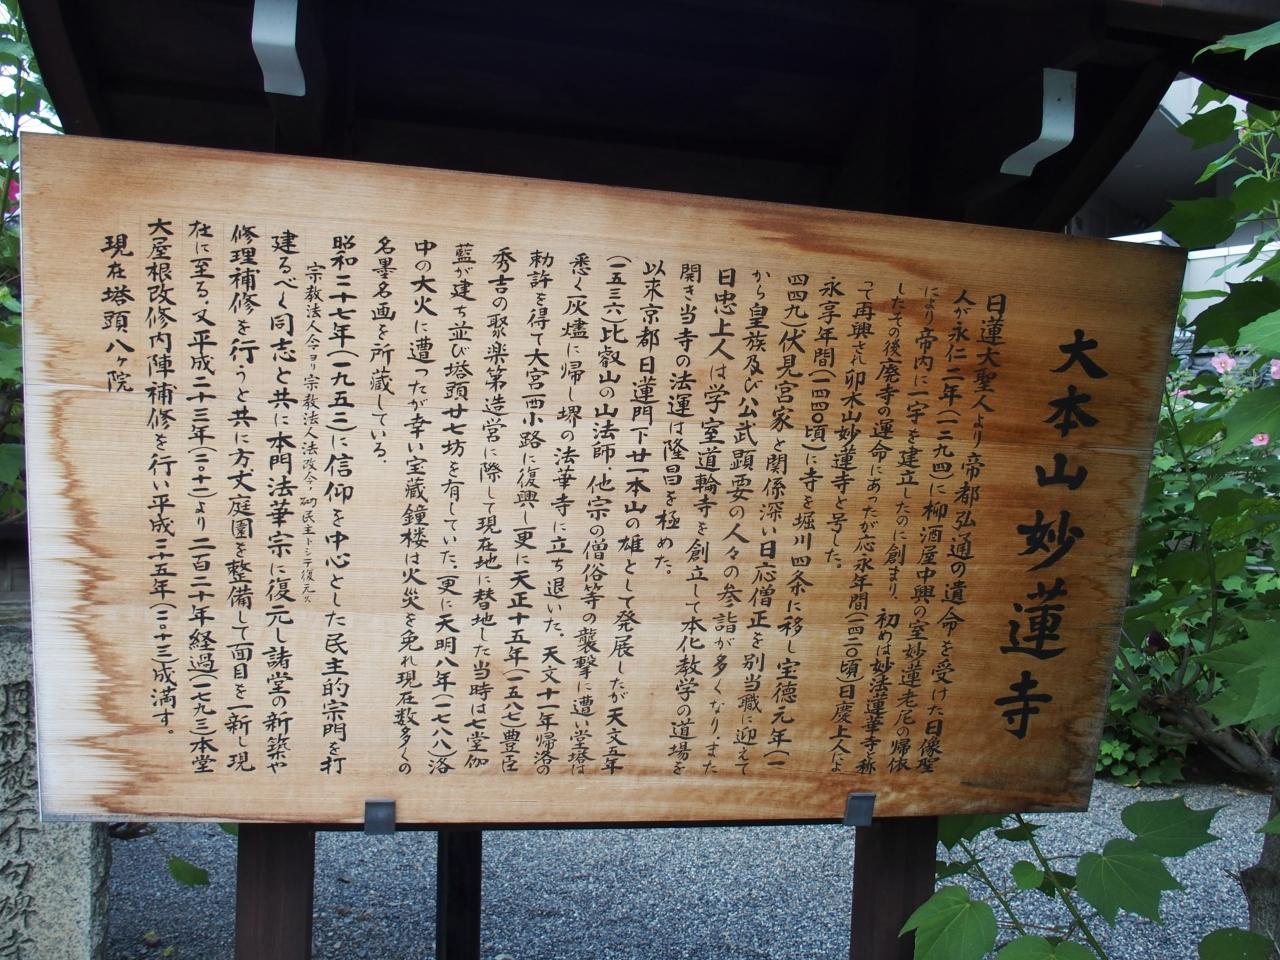 大本山妙蓮寺
日蓮大聖人より帝都弘通の遺命を受けた日像聖
人が永仁二年(一二九四)に柳酒屋中興の室妙蓮老尼の帰依
により帝内に一宇を建立したのに創まり、初めは妙法蓮華寺と称
したその後廃寺の運命にあったが応永年間(一四二〇頃)日慶上人によ
って再興され卯木山妙蓮寺と号した。
永享年間(一四四〇頃)に寺を堀川四条に移し宝徳元年(一
四四九)伏見宮家と関係深い日応僧正を別当職に迎えて
から皇族及び公武顕要の人々の参詣が多くなり、また
日忠上人は学室道輪寺を創立して本化教学の道場を
開き当寺の法運は隆昌を極めた。
以来京都日蓮門下廿一本山の雄として発展したが天文五年
(一五三六)比叡山の山法師、他宗の僧俗等の襲撃に遭い堂塔は
悉く灰燼に帰し堺の法華寺に立ち退いた。天文十一年帰洛の
勅許を得て大宮西小路に復興し更に天正十五年(一五八七)豊臣
秀吉の聚楽第造営に際して現在地に替地した当時は七堂伽
藍が建ち並び塔頭廿七坊を有していた、更に天明八年(一七八八)洛
中の大火に遭ったが幸い宝蔵鐘楼は火災を免れ現在数多くの
名墨名画を所蔵している.
昭和二十七年(一九五二)に信仰を中心とした民主的宗門を打
宗教法人令ヨリ宗教法人法改令ノ砌民主トシテ復元ス
建るべく同志と共に本門法華宗に復元し諸堂の新築や
修理補修を行うと共に方丈庭園を整備して面目を一新し現
在に至る、又平成二十三年(二〇十一)より二百二十年経過(一七九三)本堂
大屋根改修内陣補修を行い平成二十五年(二〇十三)成満す。
現在塔頭八ヶ院
句碑